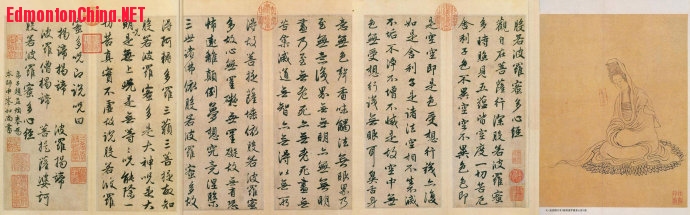 EdmontonChina.NET
般若波羅蜜多心經
觀自在菩薩行深般若波羅蜜
多時照見五蘊皆空度一切苦厄
舍利子色不異空空不異色色
即是空空即是色受想行識亦復
如是舍利子是諸法空相不生不滅
不垢不淨不增不減是故空中無
色無受想行識無眼耳鼻舌身
意無色聲香味觸法無眼界乃
至無意識界無無明亦無無明
盡乃至無老死亦無老死盡無
苦集滅道無智亦無得以無所
得故菩提薩埵依般若波羅蜜
多故心無罣礙無罣礙故無有恐
怖遠離顛倒夢想究竟涅槃
三世諸佛依般若波羅蜜多故
得阿耨多羅三藐三菩提故知
般若波羅蜜多是大神咒是大
明咒是無上咒是無等等咒能除
一切苦真實不虛故說般若波羅
蜜多咒即說咒曰
揭諦揭諦 波羅揭諦
波羅僧揭諦 菩提薩婆訶
般若波羅蜜多心經
弟子趙孟頫奉為
本師中峯和尚書